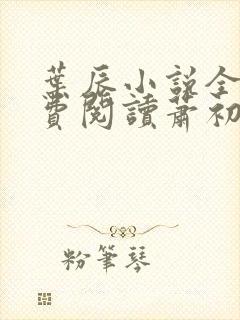 葉辰小說全
費閱讀蕭初
粉筆琴